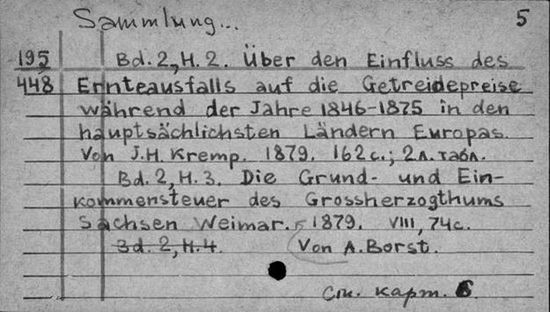 Sammlung... 5
195 Bd. 2, H. 2. Über den Einfluss des
448 Ernteausfalls auf die Getreidepreise
während der Jahre 1846-1875 in den
hauptsächlichsten Ländern Europas.
Von J.H. Kremp. 1879. 162 с.; 2 л. табл.
Bd. 2, H. 3. Die Grund- und Ein-
kommensteuer des Grossherzogthums
Sachsen Weimar. 1879. VIII, 74 с.
Bd. 2, H. 4. Von A. Borst.
См. карт. 6